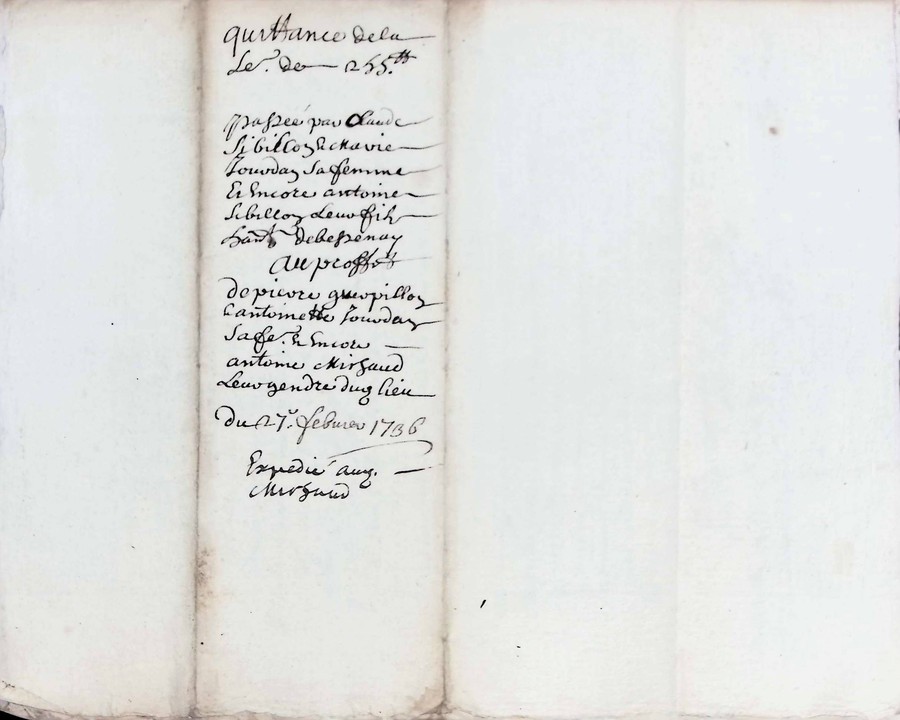 quittance de la
Se. de 255.tt
passée par Claude
Sibillon & Marie
Jourdan sa femme
Et Encore antoine
Sibillon Leur fils
hants. de bessenay
Au proffit
de pierre guerpillon
& antoinette Jourdan
Sa fe. & Encore
antoine Mirhaud
Leur gendre dud lieu
du 27e. febvrier 1736
Expedié aud.
Mirhaud